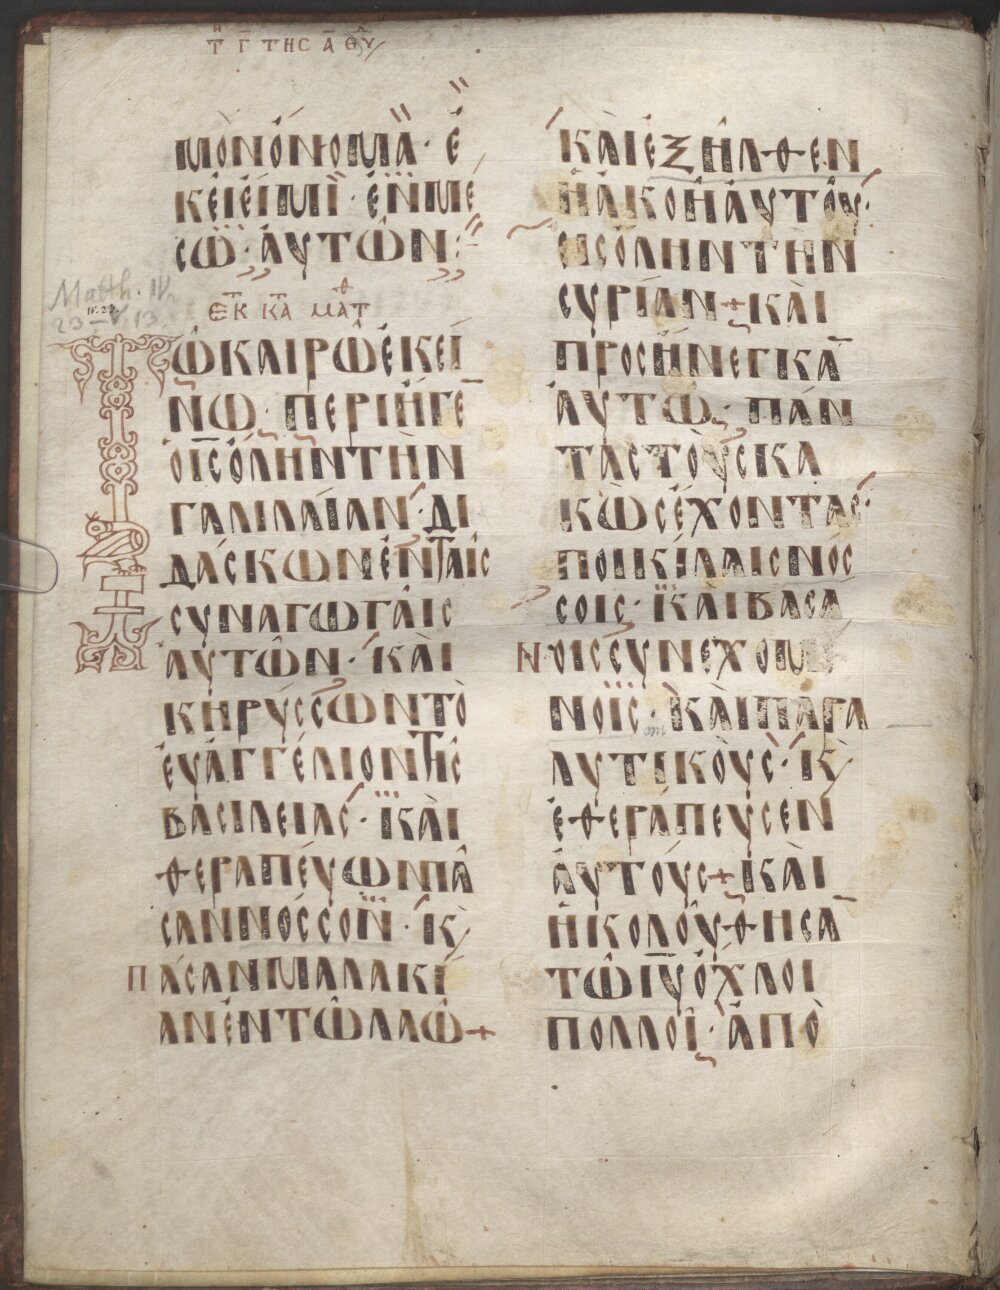 Τῇ Γ̄ ΤΗΣ Ᾱ ἙΒ
ΜΟΝΟΝΟΜΑ· Ε
ΚΕΙΕΙΜΙ· ΕΝΜΕ
CΩ· ΑΥΤΩΝ:
ΕΚ ΚΑΤ ΜΑΤΘ
Matth. IV.
23 – V. 13
ΤΩΚΑΙΡΩΕΚΕΙ
ΝΩ· ΠΕΡΙΗΓΕ̄
ΟΙCΟΛΗΝΤΗΝ
ΓΑΛΙΛΑΙΑΝ· ΔΙ
ΔΑCΚΩΝΕΝΤΑΙC
CΥΝΑΓΩΓΑΙC
ΑΥΤΩΝ· ΚΑΙ
ΚΗΡΥCCΩΝΤΟ
ΕΥΑΓΓΕΛΙΟΝΤΗC
ΒΑCΙΛΕΙΑC· ΚΑΙ
ΘΕΡΑΠΕΥΩΝΠΑ
CΑΝΝΟCCΟΝ· Κ,
ΠΑCΑΝΜΑΛΑΚΙ
ΑΝΕΝΤΩΛΑΩ+
ΚΑΙΕΞΗΛΘΕΝ
ΗΑΚΟΗΑΥΤΟΥ·
ΕΙCΟΛΗΝΤΗΝ
CΥΡΙΑΝ+ΚΑΙ
ΠΡΟCΗΝΕΓΚᾹ
ΑΥΤΩ· ΠΑΝ
ΤΑCΤΟΥCΚΑ
ΚΩCΕΧΟΝΤΑC·
ΠΟΙΚΙΛΑΙCΝΟC
CΟΙC· ΚΑΙΒΑCΑ
ΝΟΙCCΥΝΕΧΟΜΕ
ΝΟΙC· ΚΑΙΠΑΡΑ
ΛΥΤΙΚΟΥC· Κ,
ΕΘΕΡΑΠΕΥCΕΝ
ΑΥΤΟΥC+ΚΑΙ
ΗΚΟΛΟΥΘΗCᾹ
ΤΩΙ̅Υ̅ΟΧΛΟΙ
ΠΟΛΛΟΙ· ΑΠΟ